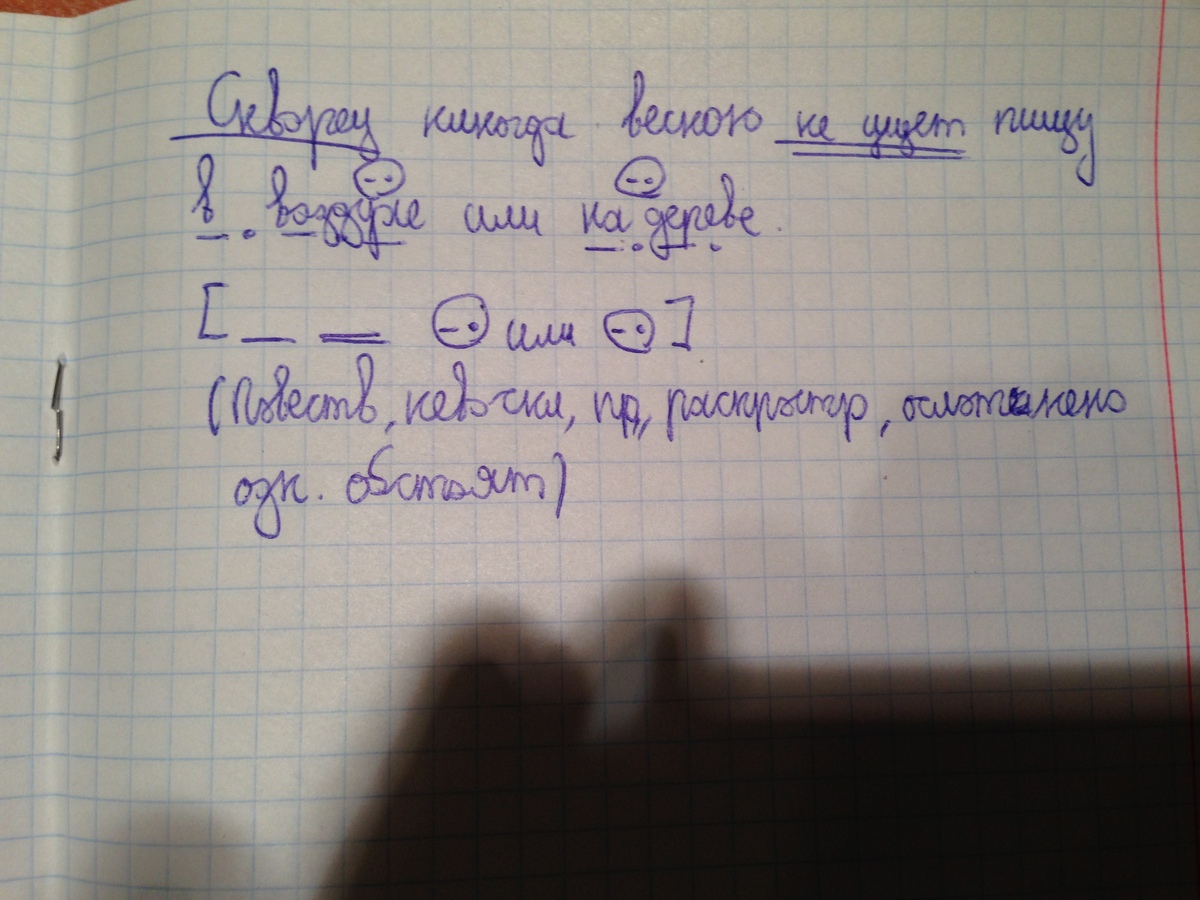 Скворец никогда весною не ищет пищу
в воздухе или на дереве.
[ или ]
(Повеств, невоскл, пр, распростр, осложнено
одн. обстоят)